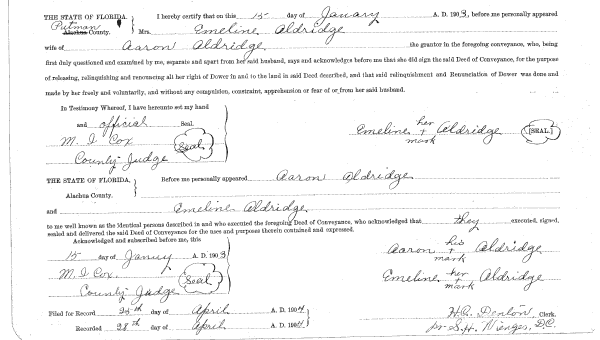 THE STATE OF FLORIDA. I hereby certify that on this 15 day of January A. D. 1903, before me personally appeared
Putman
Alachua County. Mrs. Emeline Aldridge
wife of Aaron Aldridge the grantor in the foregoing conveyance, who, being
first duly questioned and examined by me, separate and apart from her said husband, says and acknowledges before me that she did sign the said Deed of Conveyance, for the purpose
of releasing, relinquishing and renouncing all her right of Dower in and to the land in said Deed described, and that said relinquishment and Renunciation of Dower was done and
made by her freely and voluntarily, and without any compulsion, constraint, apprehension or fear of or from her said husband.
In Testimony Whereof, I have hereunto set my hand
and official Seal
M. I Cox (Seal)
County Judge
her
Emeline + Aldridge [SEAL.]
mark
THE STATE OF FLORIDA. Before me personally appeared Aaron Aldridge
Alachua County.
and Emeline Aldridge
to me well known as the identical persons described in and who executed the foregoing Deed of Conveyance, who acknowledged that they executed, signed,
sealed and delivered the said Deed of Conveyance for the uses and purposes therein contained and expressed.
Acknowledged and subscribed before me, this
15 day of January A. D. 1903
M. I Cox. (Seal)
County Judge
his
Aaron + Aldridge
mark
her
Emeline + Aldridge
mark
Filed for Record 28th day of April A. D. 1904
Recorded 28th day of April A. D. 1904
H. C. Denton, Clerk.
S. H. D.C.